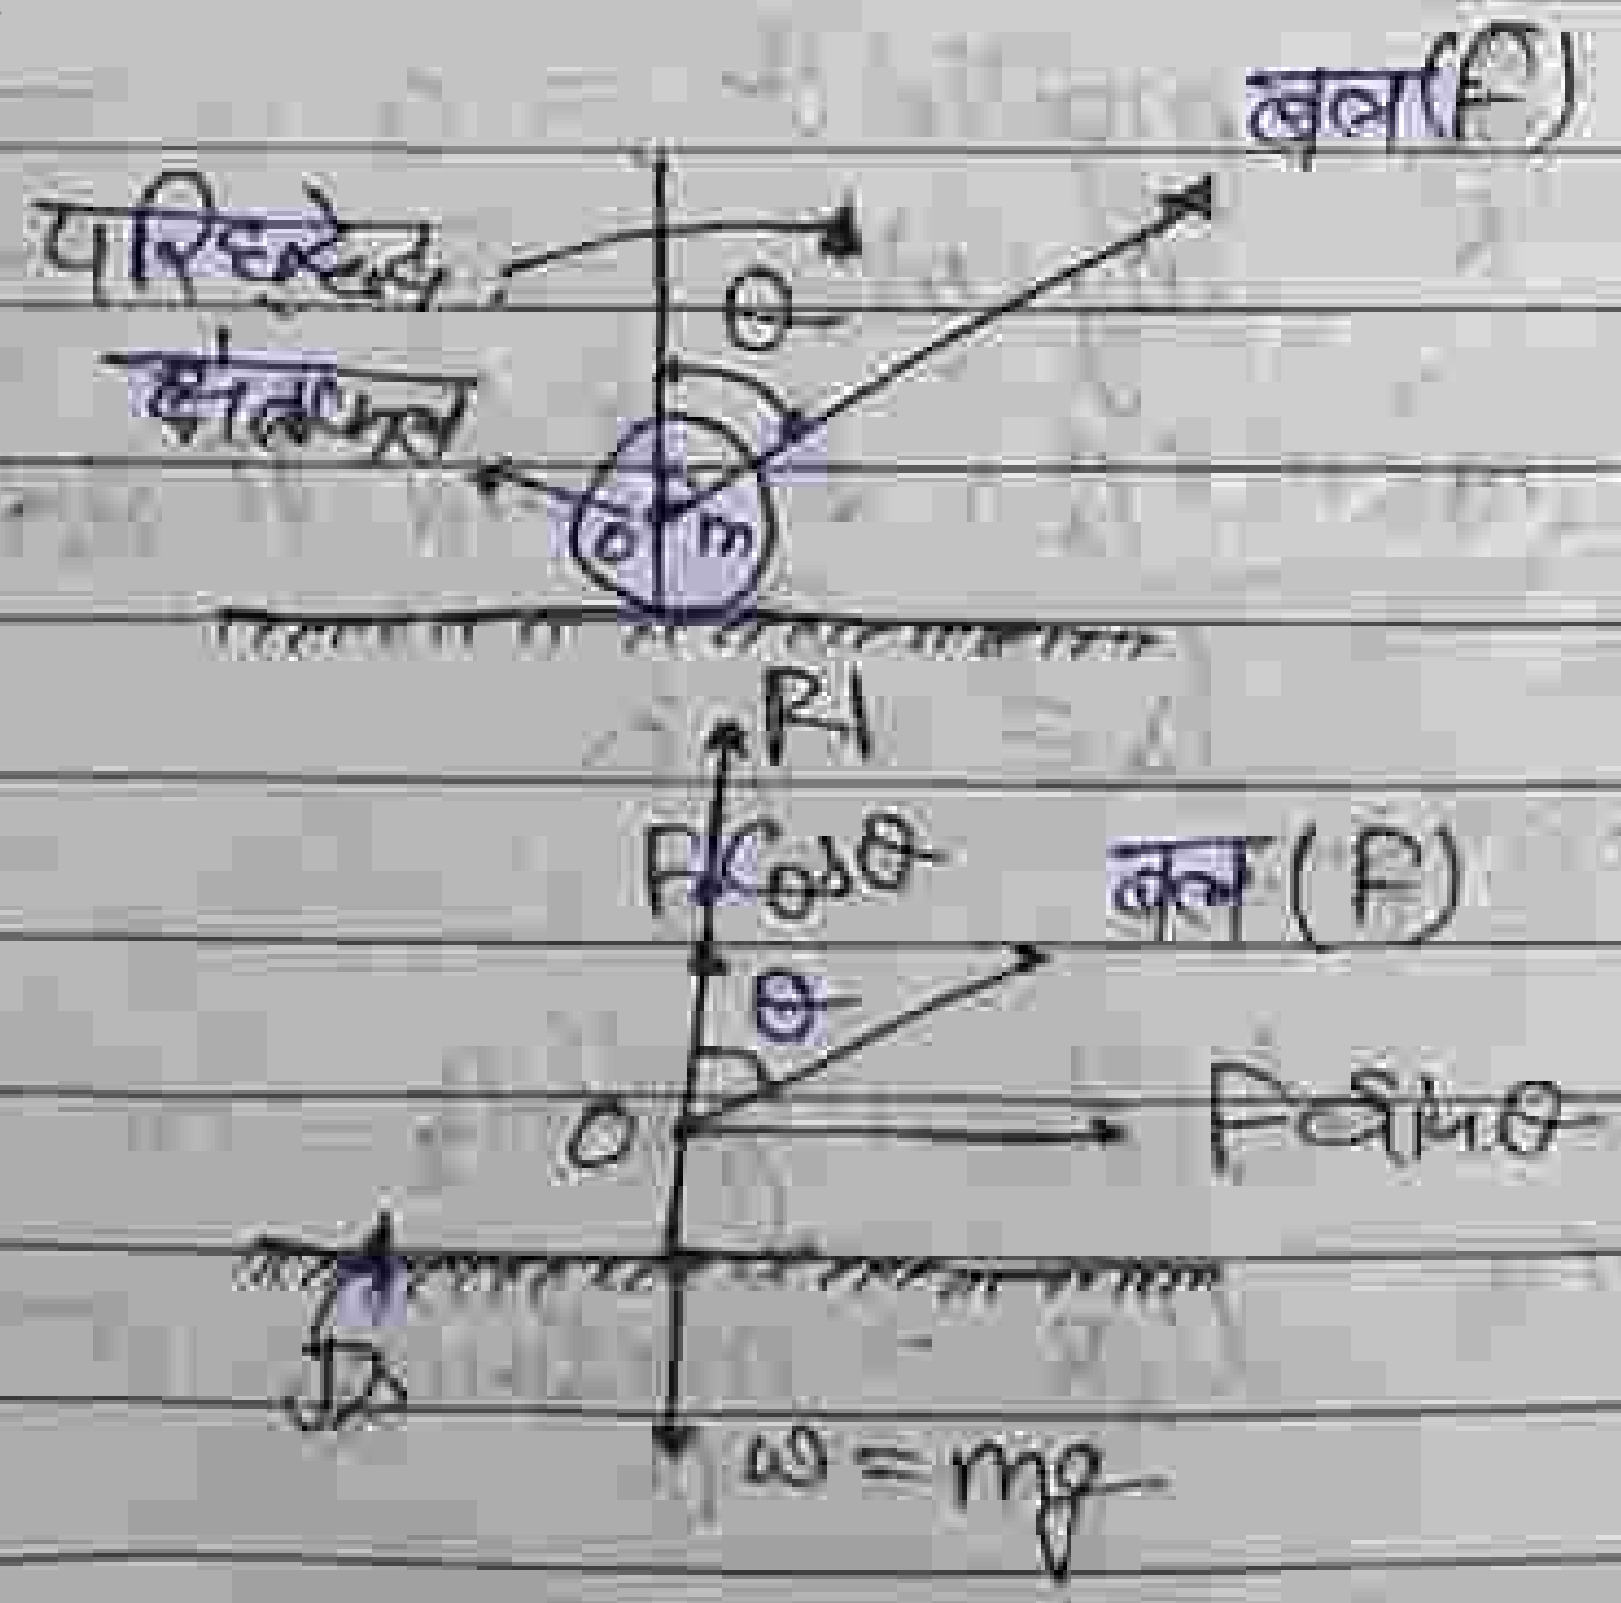 बल (F)
परिच्छेद
θ
क्षेत्रफल
O m
R
F Cosθ
बल (F)
θ
O
F Sinθ
fs
w = mg